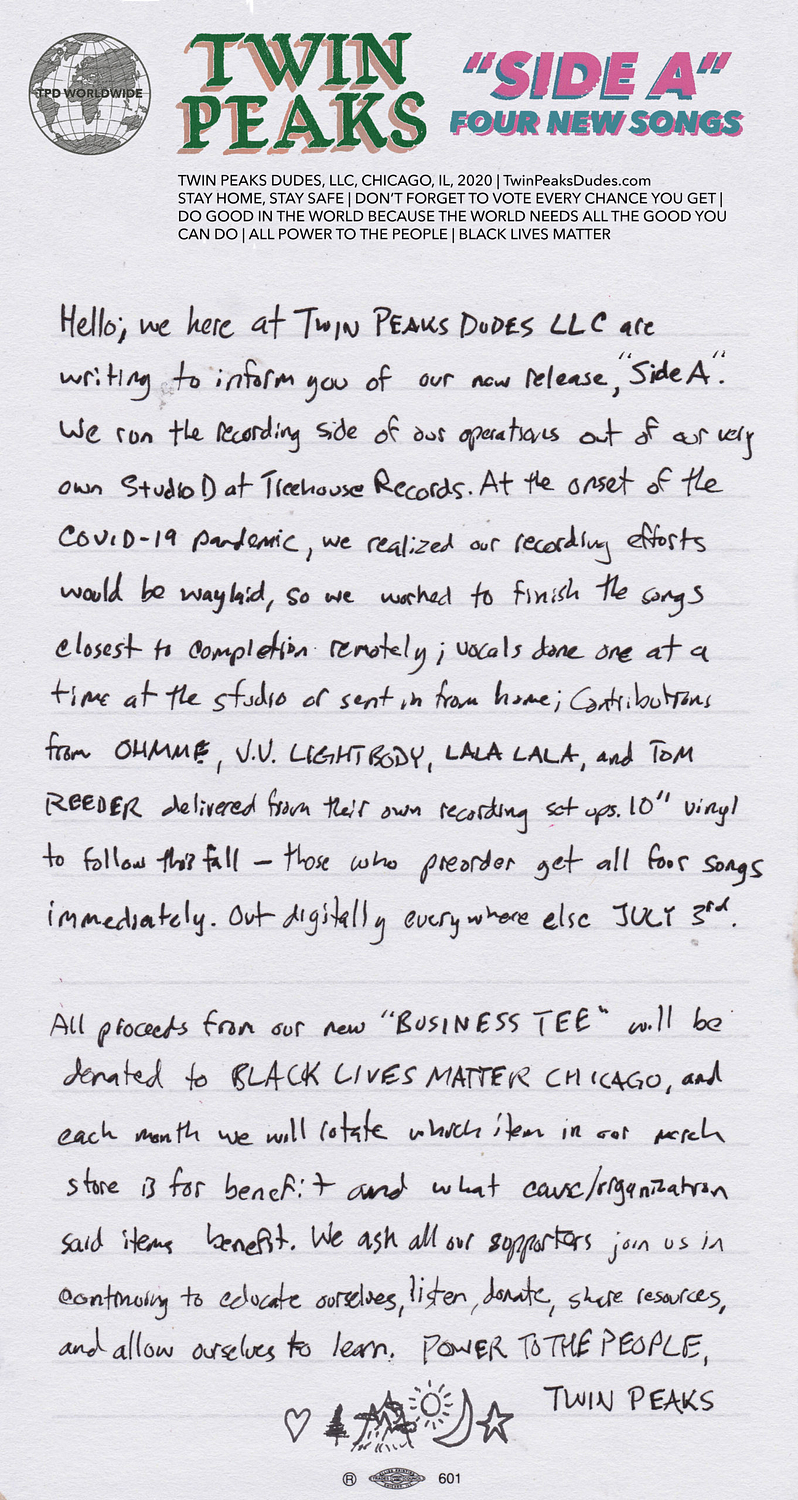 TPD WORLDWIDE
TWIN
PEAKS
"SIDE A"
FOUR NEW SONGS
TWIN PEAKS DUDES, LLC, CHICAGO, IL, 2020 | TwinPeaksDudes.com
STAY HOME, STAY SAFE | DON'T FORGET TO VOTE EVERY CHANCE YOU GET |
DO GOOD IN THE WORLD BECAUSE THE WORLD NEEDS ALL THE GOOD YOU
CAN DO | ALL POWER TO THE PEOPLE | BLACK LIVES MATTER
Hello; we here at TWIN PEAKS DUDES LLC are
writing to inform you of our new release, "Side A".
We run the recording side of our operations out of our very
own Studio D at Treehouse Records. At the onset of the
COVID-19 pandemic, we realized our recording efforts
would be waylaid, so we worked to finish the songs
closest to completion remotely; vocals done one at a
time at the studio or sent in from home; Contributions
from OHMME, V.V. LIGHTBODY, LALA LALA, and TOM
REEDER delivered from their own recording set ups. 10" vinyl
to follow this fall – those who preorder get all four songs
immediately. Out digitally everywhere else JULY 3rd.
All proceeds from our new "BUSINESS TEE" will be
donated to BLACK LIVES MATTER CHICAGO, and
each month we will rotate which item in our merch
store is for benefit and what cause/organization
said items benefit. We ask all our supporters join us in
continuing to educate ourselves, listen, donate, share resources,
and allow ourselves to learn. POWER TO THE PEOPLE,
TWIN PEAKS
® 601